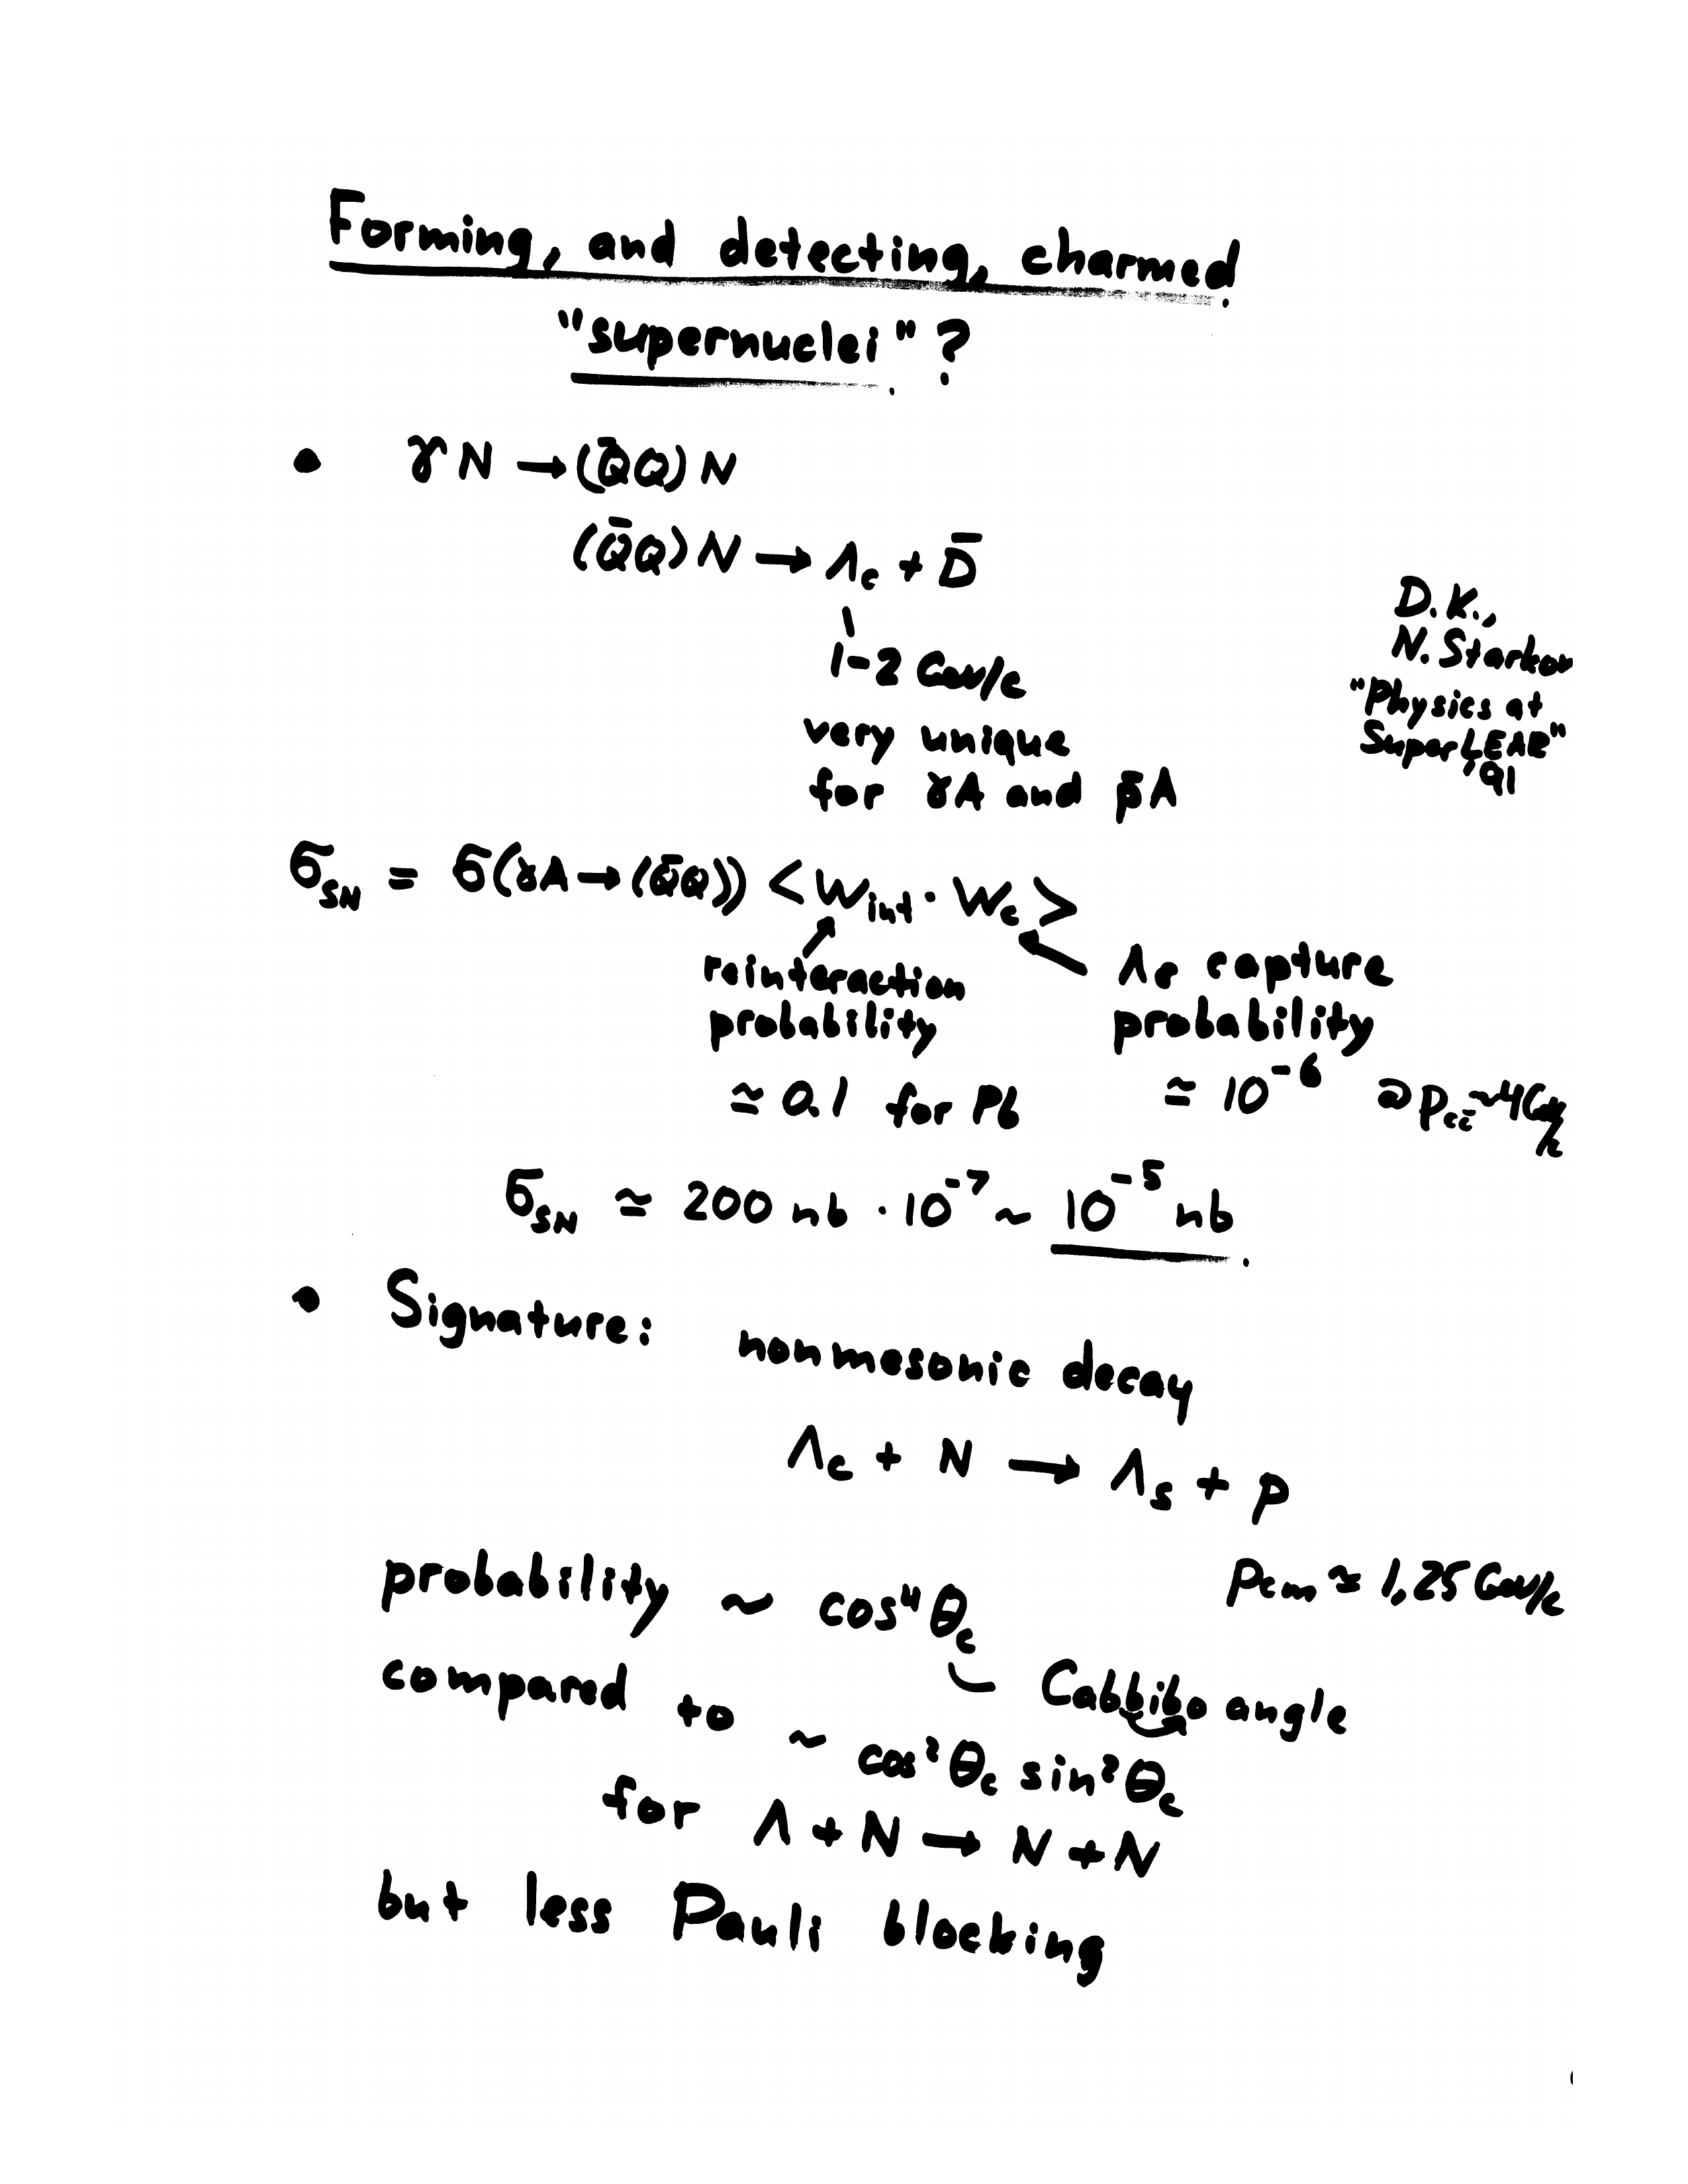 Forming, and detecting, charmed
"supernuclei"?
• γN → (Q̄Q)N
(Q̄Q)N → Λc + D̄
1-2 GeV/c
very unique
for γA and p̄A
D.K.,
N. Starkov
"Physics at
SuperLEAR"
'91
σSN = σ(γA → (Q̄Q)) <Wint · Wc>
reinteraction
probability
≃ 0.1 for Pb
Λc capture
probability
≃ 10⁻⁶ @ pcc̄ ~4GeV/c
σSN ≃ 200 nb · 10⁻⁷ ~ 10⁻⁵ nb
• Signature: nonmesonic decay
Λc + N → Λs + p
pcm ≃ 1,25 GeV/c
probability ~ cos⁴θc
Cabbibo angle
compared to ~ cos²θc sin²θc
for Λ + N → N + N
but less Pauli blocking